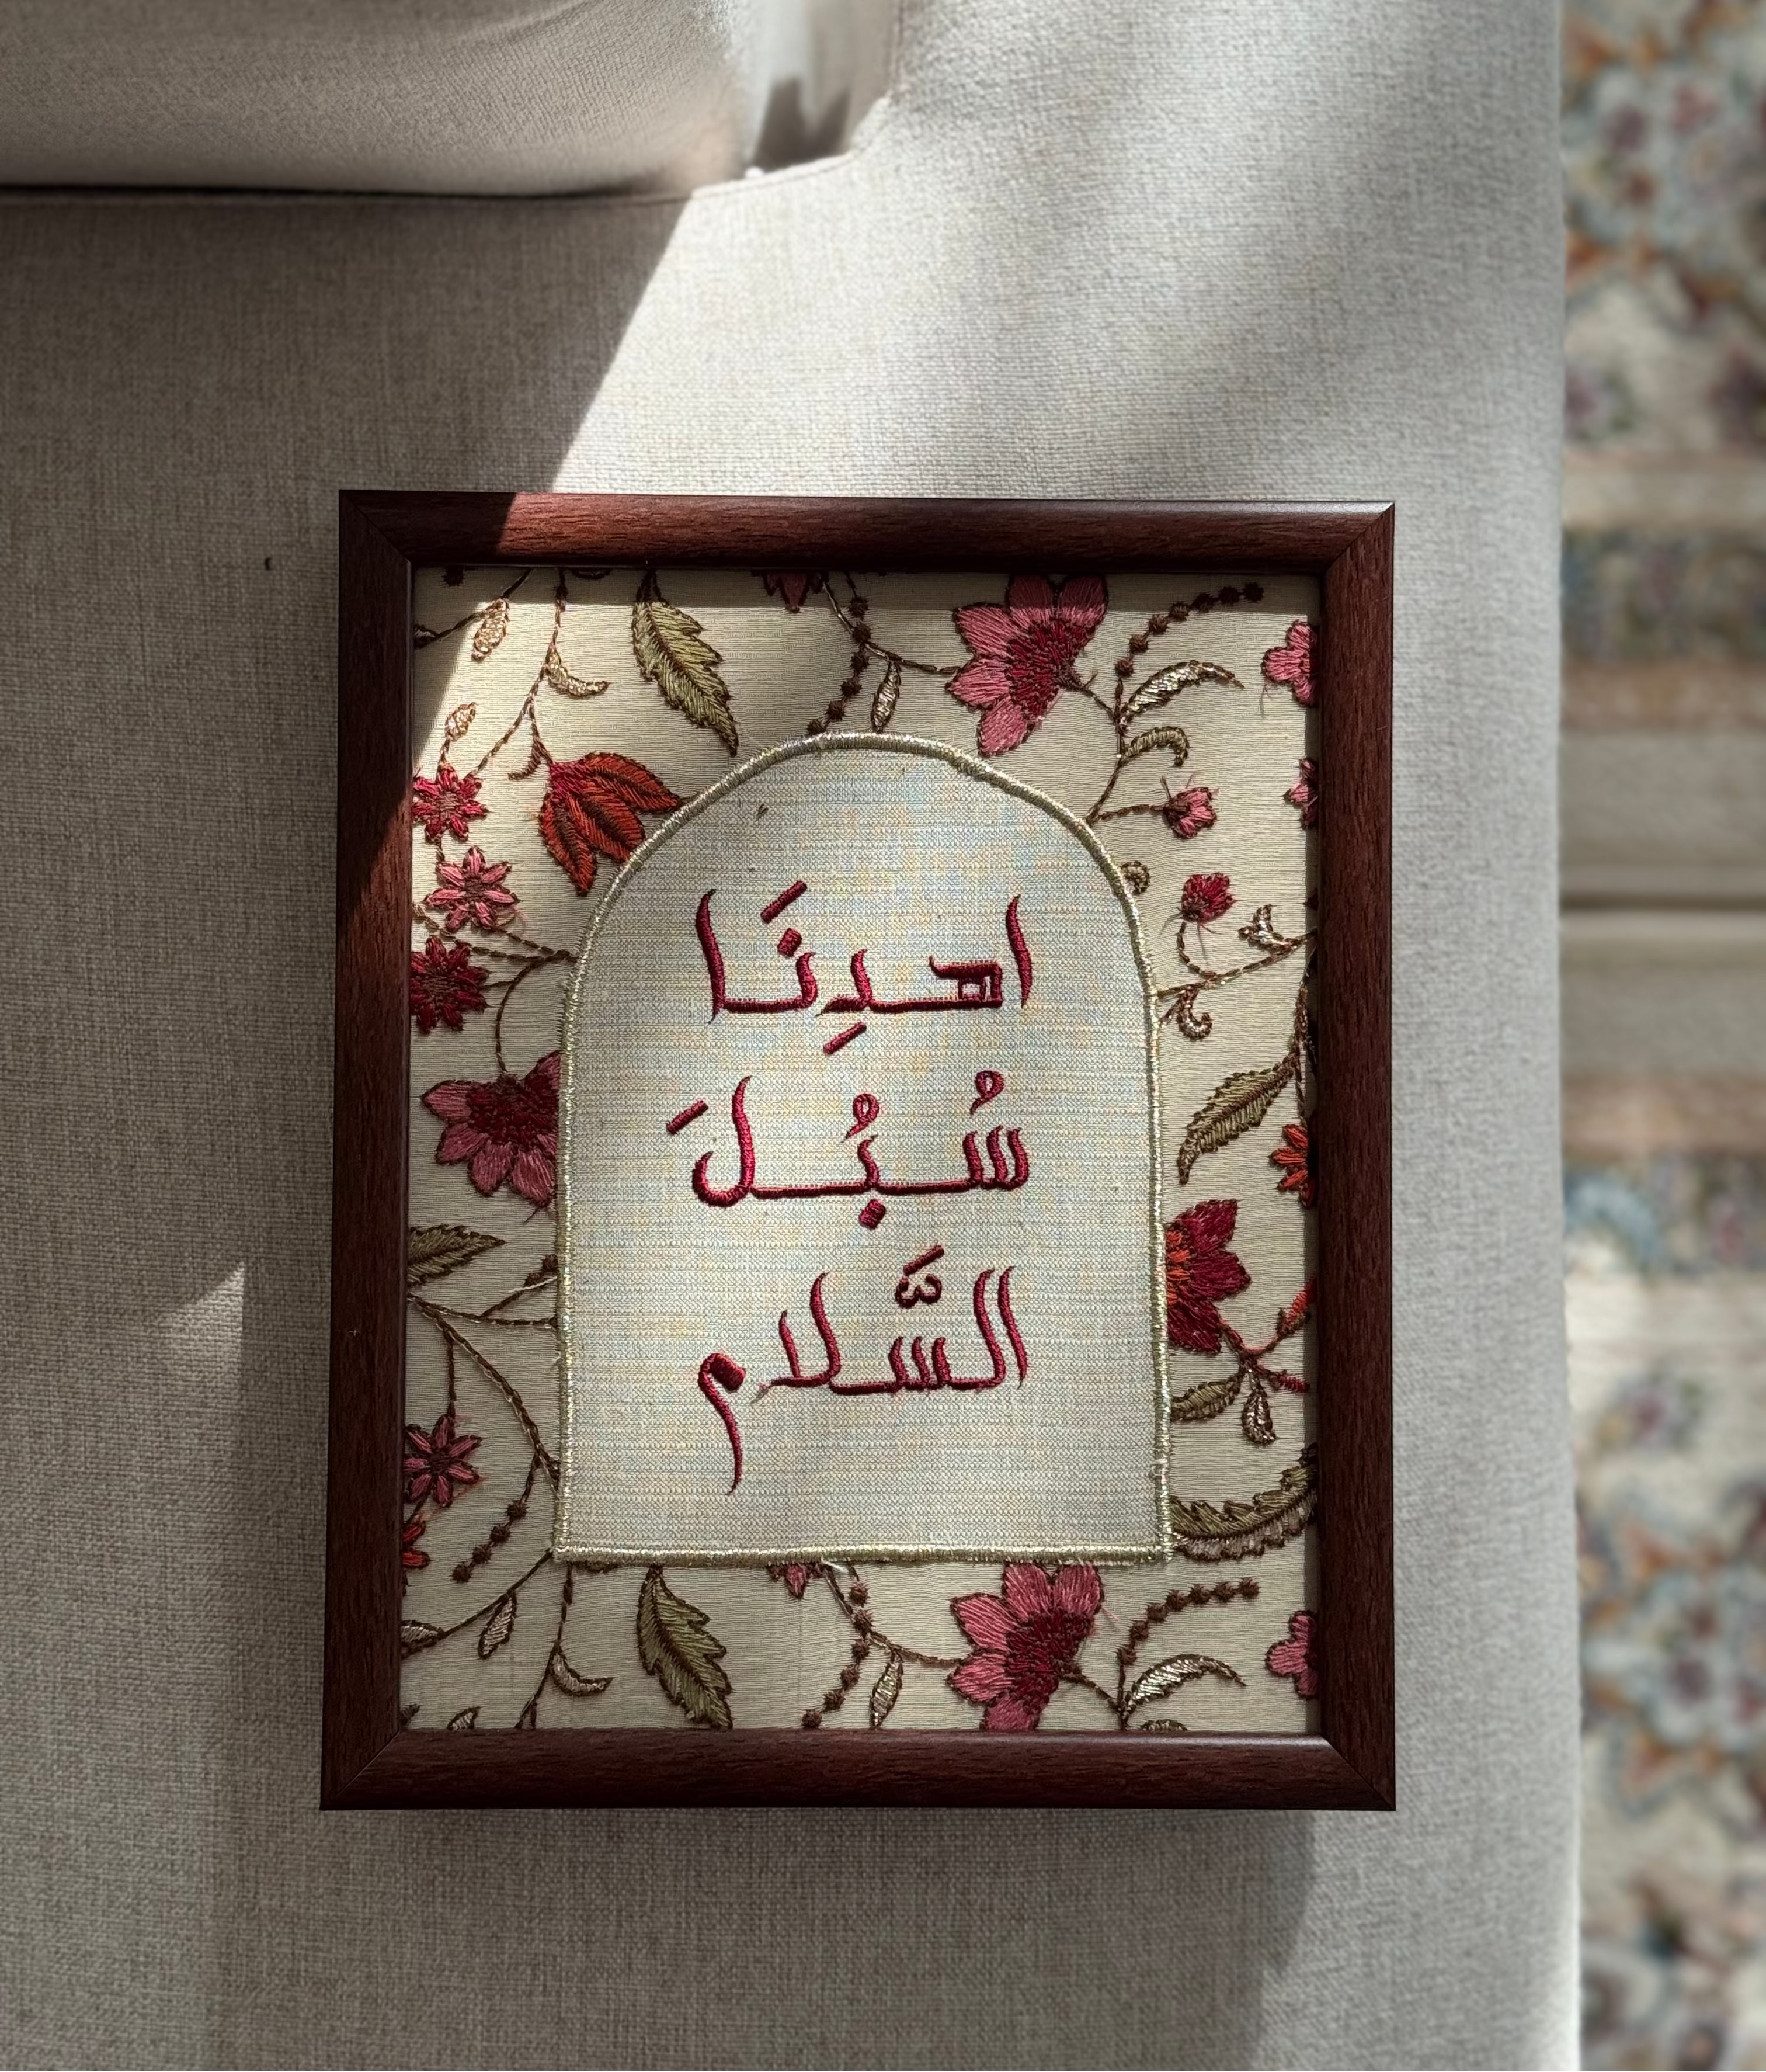 اهدِنَا
سُبُلَ
السَّلام